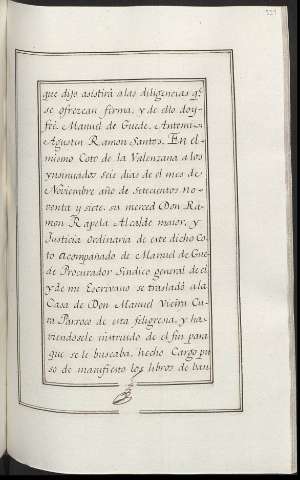 que dijo asistirá a las diligencias q.e
se ofrezcan firma, y de ello doy
feé. Manuel de Guede. Antemi.=
Agustin Ramon Santos. En el
mismo Coto de la Valenzana a los
ynsinuados seis dias de el mes de
Noviembre año de setecientos no-
venta y siete, su merced Don Ra-
mon Rapela Alcalde maior, y
Justicia Ordinaria de este dicho Co-
to acompañado de Manuel de Gue-
de Procurador Sindico general de el
y de mi Escrivano se traslado ala
Casa de Don Manuel Vieira Cu-
ra Parroco de esta feligresia, y ha-
viendosele instruido de el fin para
que se le buscaba, hecho Cargo pu-
so de manifiesto los libros de bau